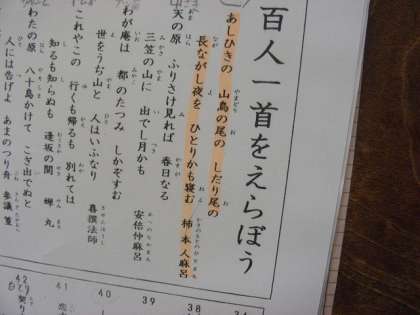 百人一首をえらぼう
あしひきの 山鳥の尾の しだり尾の
長ながし夜を ひとりかも寝む 柿本人麻呂
天の原 ふりさけ見れば 春日なる
三笠の山に 出でし月かも 安倍仲麻呂
わが庵は 都のたつみ しかぞすむ
世をうぢ山と 人はいふなり 喜撰法師
これやこの 行くも帰るも 別れては
知るも知らぬも 逢坂の関 蝉丸
わたの原 八十島かけて こぎ出でぬと
人には告げよ あまのつり舟 参議篁
39
40
41
42